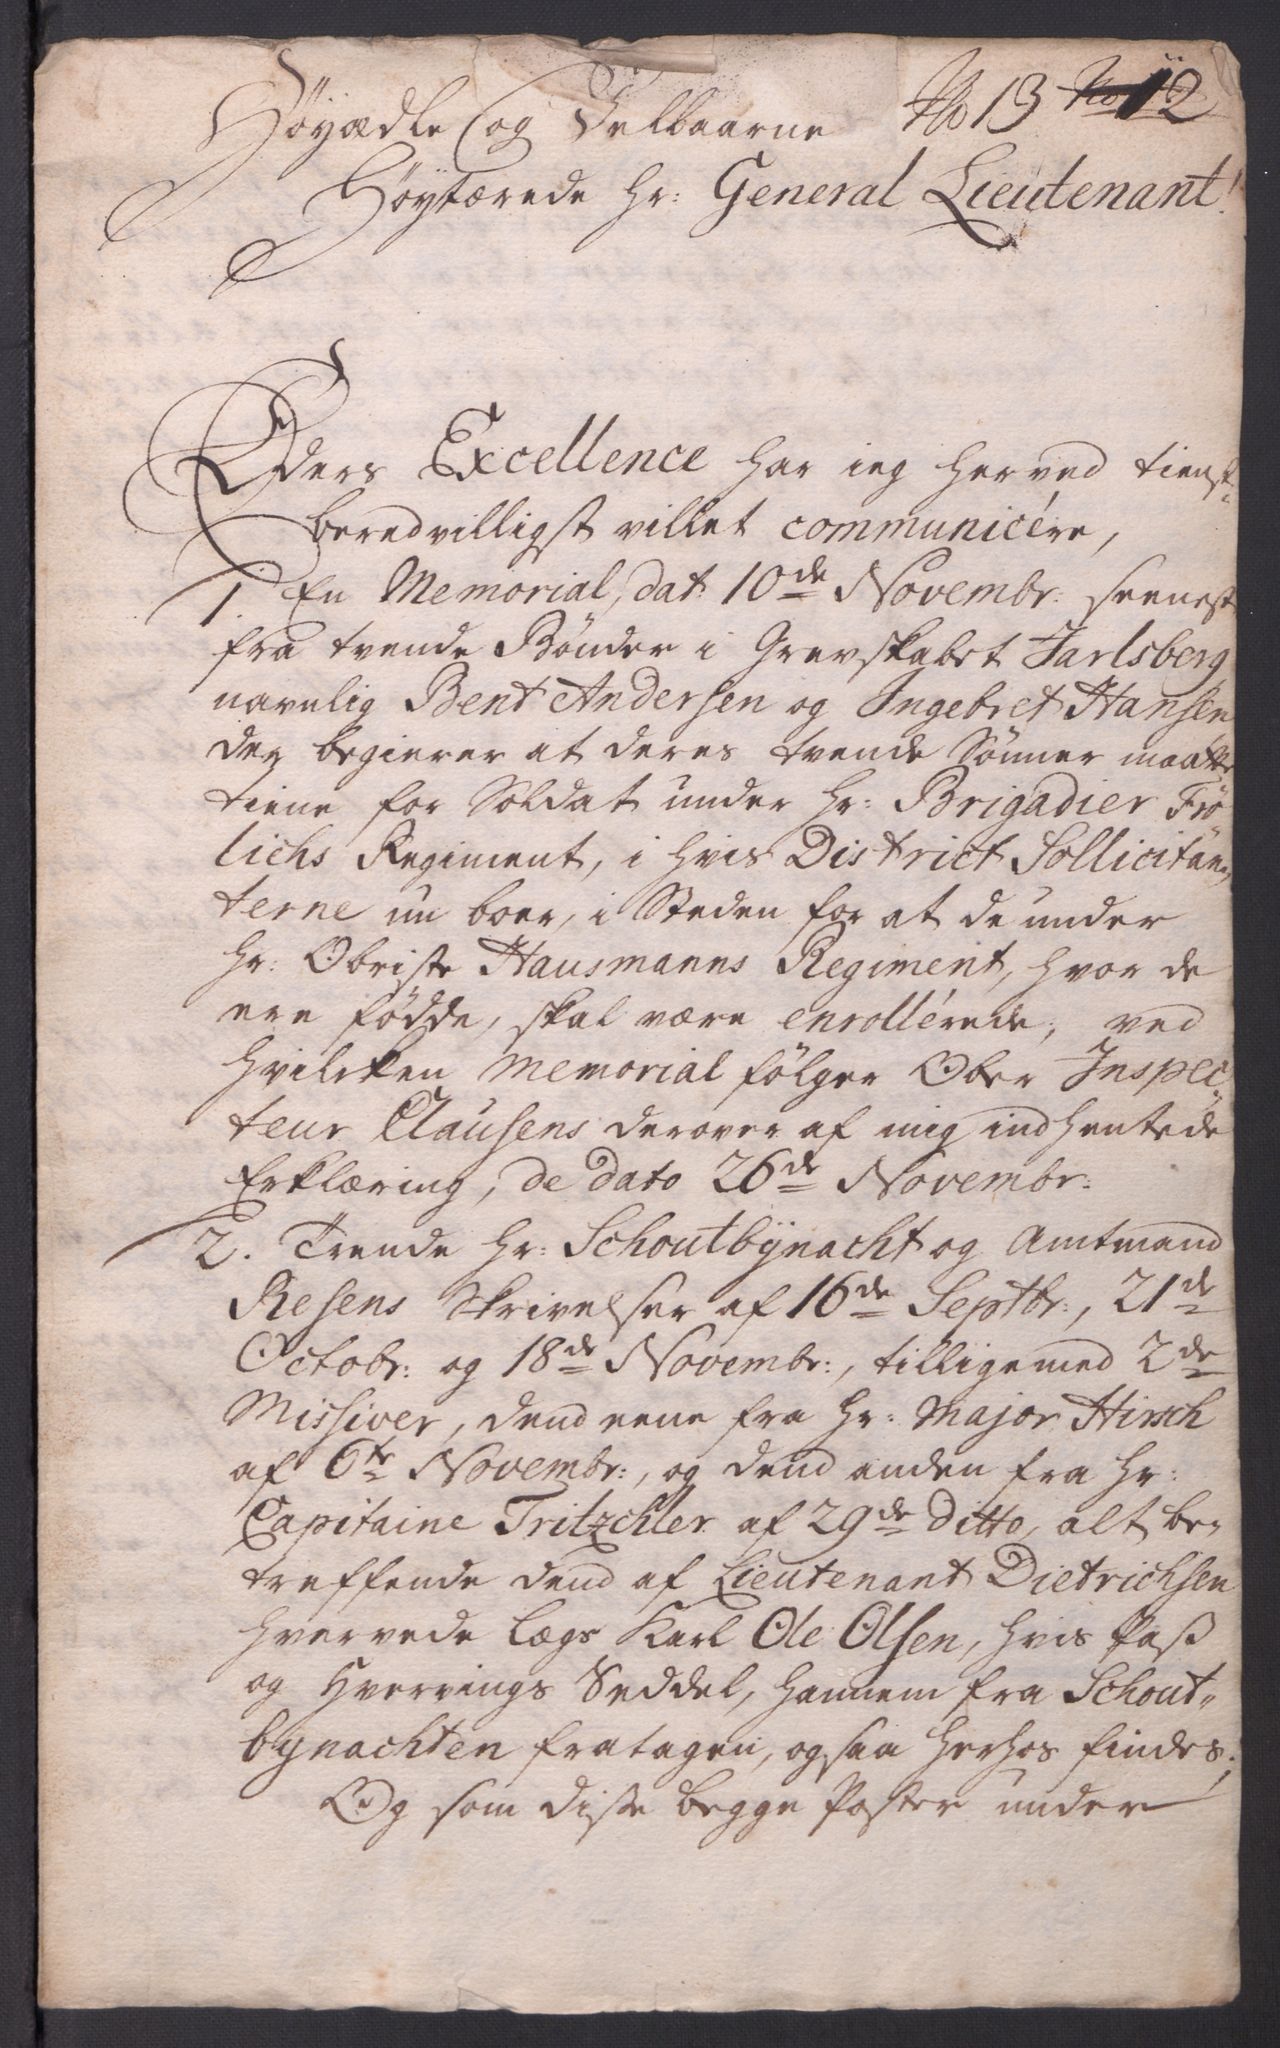 Høyædle og Velbaarne No 13 No 12
Høytærede Hr: General Lieutenant!
Eders Excellence har ieg herved tienst-
beredvilligst villet communicére,
1. En Memorial, dat: 10de Novembr: seenest
fra tvende Bønder i Grevskabet Jarlsberg
navnlig Bent Andersen og Ingebret Hansen
der begierer at deres tvende Sønner maatte
tiene for Soldat under Hr: Brigadier Frö
lichs Regiment, i hvis District Sollicitan-
terne nu boer, i Steden for at de under
Hr: Obriste Hausmanns Regiment, hvor de
ere födde, skal være enrollérede, ved
hvilcken Memorial fölger Ober Inspec-
teur Clausens derover af mig indhentede
Erklæring, de dato 26de Novembr:
2. Trende Hr: Schoutbynacht og Amtmand
Resens Skrivelser af 16de Septbr:, 21de
Octobr: og 18de Novembr:, tilligemed 2de
Missiver, dend eene fra Hr: Major Hirsch
af 6te Novembr:, og dend anden fra Hr:
Capitaine Tritzchler af 29de ditto, alt be-
treffende dend af Lieutenant Dietrichsen
hvervede Lægs Karl Ole Olsen, hvis Pass
og Hvervings Seddel, hannem fra Schout-
bynachten fratagen, ogsaa herhos findes;
Og som disse begge Poster under